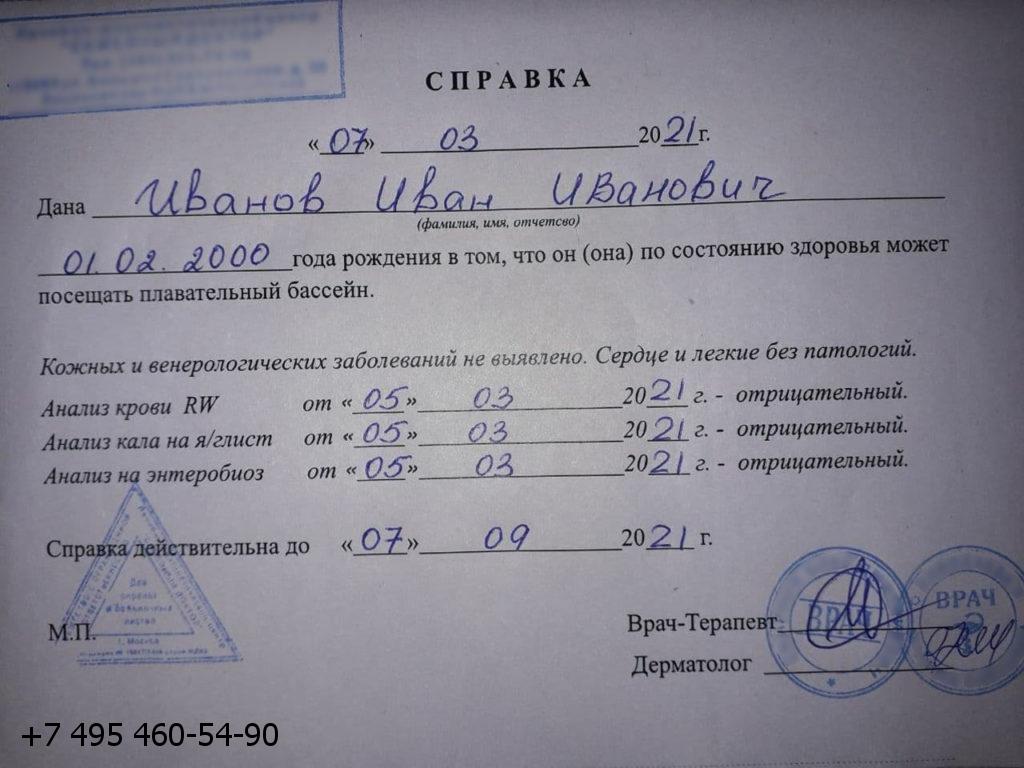 СПРАВКА
«07» 03 2021 г.
Дана Иванов Иван Иванович
(фамилия, имя, отчетсво)
01.02.2000 года рождения в том, что он (она) по состоянию здоровья может
посещать плавательный бассейн.
Кожных и венерологических заболеваний не выявлено. Сердце и легкие без патологий.
Анализ крови RW от «05» 03 2021 г. - отрицательный.
Анализ кала на я/глист от «05» 03 2021 г. - отрицательный.
Анализ на энтеробиоз от «05» 03 2021 г. - отрицательный.
Справка действительна до «07» 09 2021 г.
Для
справок
и больничных
листов
г. Москва
М.П.
Врач-Терапевт
ВРАЧ
ВРАЧ
Дерматолог
+7 495 460-54-90